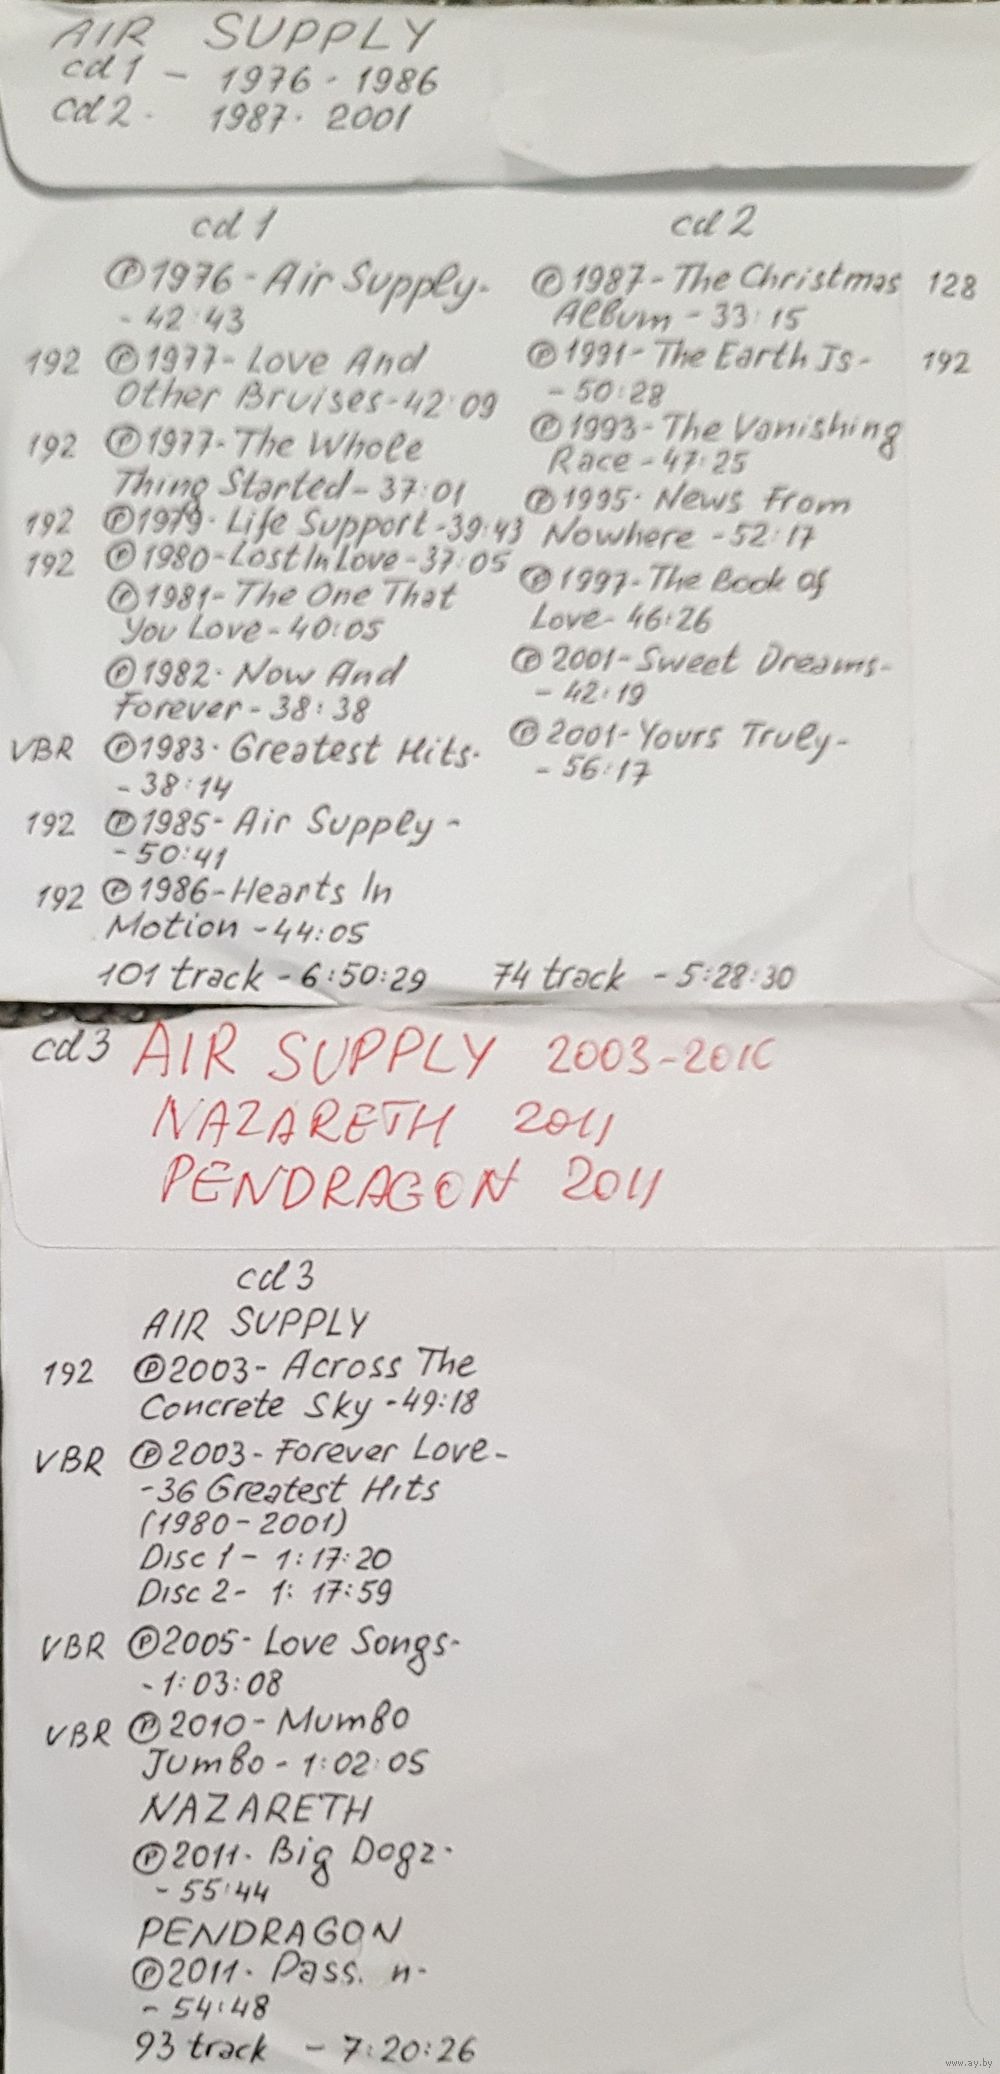 AIR SUPPLY
cd1 - 1976 - 1986
cd2 - 1987 - 2001
cd1
℗1976 - Air Supply -
- 42:43
192 ℗1977 - Love And
Other Bruises - 42:09
192 ℗1977 - The Whole
Thing Started - 37:01
192 ℗1979 - Life Support - 39:43
192 ℗1980 - Lost In Love - 37:05
℗1981 - The One That
You Love - 40:05
℗1982 - Now And
Forever - 38:38
VBR ℗1983 - Greatest Hits -
- 38:14
192 ℗1985 - Air Supply -
- 50:41
192 ℗1986 - Hearts In
Motion - 44:05
101 track - 6:50:29
cd2
℗1987 - The Christmas 128
Album - 33:15
℗1991 - The Earth Is - 192
- 50:28
℗1993 - The Vanishing
Race - 47:25
℗1995 - News From
Nowhere - 52:17
℗1997 - The Book of
Love - 46:26
℗2001 - Sweet Dreams -
- 42:19
℗2001 - Yours Truly -
- 56:17
74 track - 5:28:30
cd3 AIR SUPPLY 2003-2010
NAZARETH 2011
PENDRAGON 2011
cd3
AIR SUPPLY
192 ℗2003 - Across The
Concrete Sky - 49:18
VBR ℗2003 - Forever Love -
- 36 Greatest Hits
(1980 - 2001)
Disc 1 - 1:17:20
Disc 2 - 1:17:59
VBR ℗2005 - Love Songs -
- 1:03:08
VBR ℗2010 - Mumbo
Jumbo - 1:02:05
NAZARETH
℗2011 - Big Dogz -
- 55:44
PENDRAGON
℗2011 - Pass. n -
- 54:48
93 track - 7:20:26
www.ay.by